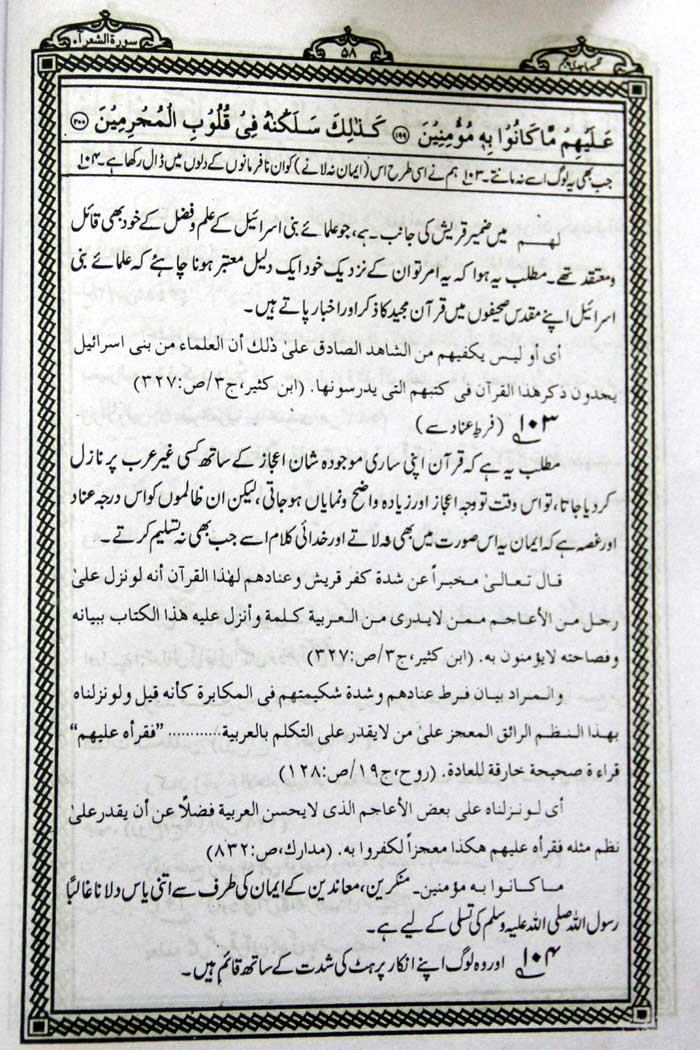 سورة الشعرآء
۵۸
عَلَيْهِمْ مَّا كَانُوْا بِهٖ مُؤْمِنِيْنَ ۱۹۹ كَذٰلِكَ سَلَكْنٰهُ فِىْ قُلُوْبِ الْمُجْرِمِيْنَ ۲۰۰
جب بھی یہ لوگ اسے نہ مانتے۔ ۱۰۳ ہم نے اسی طرح اس (ایمان نہ لانے) کو ان نافرمانوں کے دلوں میں ڈال رکھا ہے۔ ۱۰۴
لہم میں ضمیر قریش کی جانب ہے، جو علمائے بنی اسرائیل کے علم وفضل کے خود بھی قائل
ومعتقد تھے۔ مطلب یہ ہوا کہ یہ امر تو ان کے نزدیک خود ایک دلیل معتبر ہونا چاہئے کہ علمائے بنی
اسرائیل اپنے مقدس صحیفوں میں قرآن مجید کا ذکر اور اخبار پاتے ہیں۔
أى أو ليس يكفيهم من الشاهد الصادق علىٰ ذلك أن العلماء من بنى اسرائيل
يجدون ذكر هذا القرآن فى كتبهم التى يدرسونها. (ابن كثير، ج۳/ص:۳۲۷)
۱۰۳ (فرطِ عناد سے)
مطلب یہ ہے کہ قرآن اپنی ساری موجودہ شان اعجاز کے ساتھ کسی غیر عرب پر نازل
کر دیا جاتا، تو اس وقت تو وجہ اعجاز اور زیادہ واضح و نمایاں ہو جاتی، لیکن ان ظالموں کو اس درجہ عناد
اور غصہ ہے کہ ایمان یہ اس صورت میں بھی نہ لاتے اور خدائی کلام اسے جب بھی نہ تسلیم کرتے۔
قال تعالىٰ مخبراً عن شدة كفر قريش وعنادهم لهٰذا القرآن أنه لونزل علىٰ
رجل من الأعاجم ممن لايدرى من العربية كلمة وأنزل عليه هٰذا الكتاب ببيانه
وفصاحته لايؤمنون به. (ابن كثير، ج۳/ص:۳۲۷)
والمراد بيان فرط عنادهم وشدة شكيمتهم فى المكابرة كأنه قيل ولونزلناه
بهذا النظم الرائق المعجز علىٰ من لايقدر على التكلم بالعربية ........... "فقرأه عليهم"
قراءة صحيحة خارقة للعادة. (روح، ج۱۹/ص:۱۲۸)
أى لونزلناه على بعض الأعاجم الذى لايحسن العربية فضلًا عن أن يقدر علىٰ
نظم مثله فقرأه عليهم هكذا معجزاً لكفروا به. (مدارك، ص:۸۳۲)
ماكانوا به مؤمنين۔ منکرین، معاندین کے ایمان کی طرف سے اتنی یاس دلانا غالبًا
رسول اللہ صلی اللہ علیہ وسلم کی تسلی کے لیے ہے۔
۱۰۴ اور وہ لوگ اپنے انکار پر ہٹ کی شدت کے ساتھ قائم ہیں۔